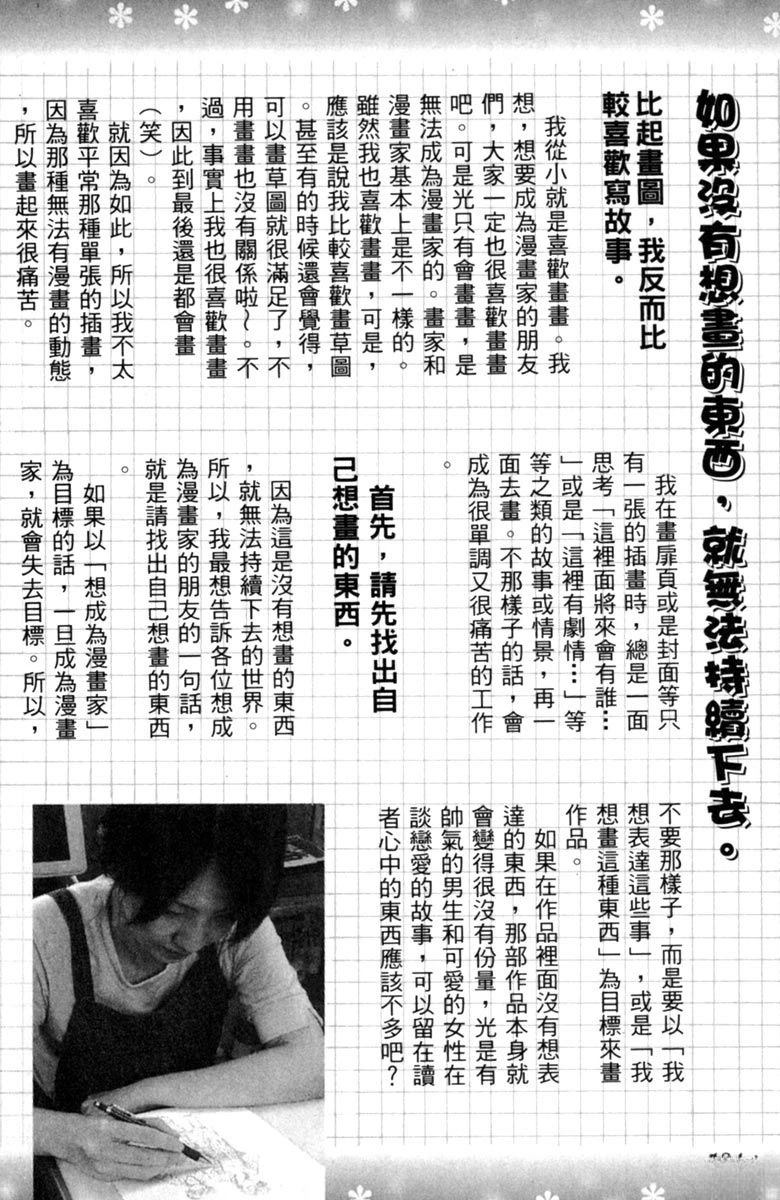 如果沒有想畫的東西，就無法持續下去。
比起畫圖，我反而比
較喜歡寫故事。
我從小就是喜歡畫畫。我
想，想要成為漫畫家的朋友
們，大家一定也很喜歡畫畫
吧。可是光只有會畫畫，是
無法成為漫畫家的。畫家和
漫畫家基本上是不一樣的。
雖然我也喜歡畫畫，可是，
應該是說我比較喜歡畫草圖
。甚至有的時候還會覺得，
可以畫草圖就很滿足了，不
用畫畫也沒有關係啦～。不
過，事實上我也很喜歡畫畫
，因此到最後還是都會畫
（笑）。
就因為如此，所以我不太
喜歡平常那種單張的插畫，
因為那種無法有漫畫的動態
，所以畫起來很痛苦。
我在畫扉頁或是封面等只
有一張的插畫時，總是一面
思考「這裡面將來會有誰…
」或是「這裡有劇情…」等
等之類的故事或情景，再一
面去畫。不那樣子的話，會
成為很單調又很痛苦的工作
。
首先，請先找出自
己想畫的東西。
因為這是沒有想畫的東西
，就無法持續下去的世界。
所以，我最想告訴各位想成
為漫畫家的朋友的一句話，
就是請找出自己想畫的東西
。
如果以「想成為漫畫家」
為目標的話，一旦成為漫畫
家，就會失去目標。所以，
不要那樣子，而是要以「我
想表達這些事」，或是「我
想畫這種東西」為目標來畫
作品。
如果在作品裡面沒有想表
達的東西，那部作品本身就
會變得很沒有份量，光是有
帥氣的男生和可愛的女性在
談戀愛的故事，可以留在讀
者心中的東西應該不多吧？